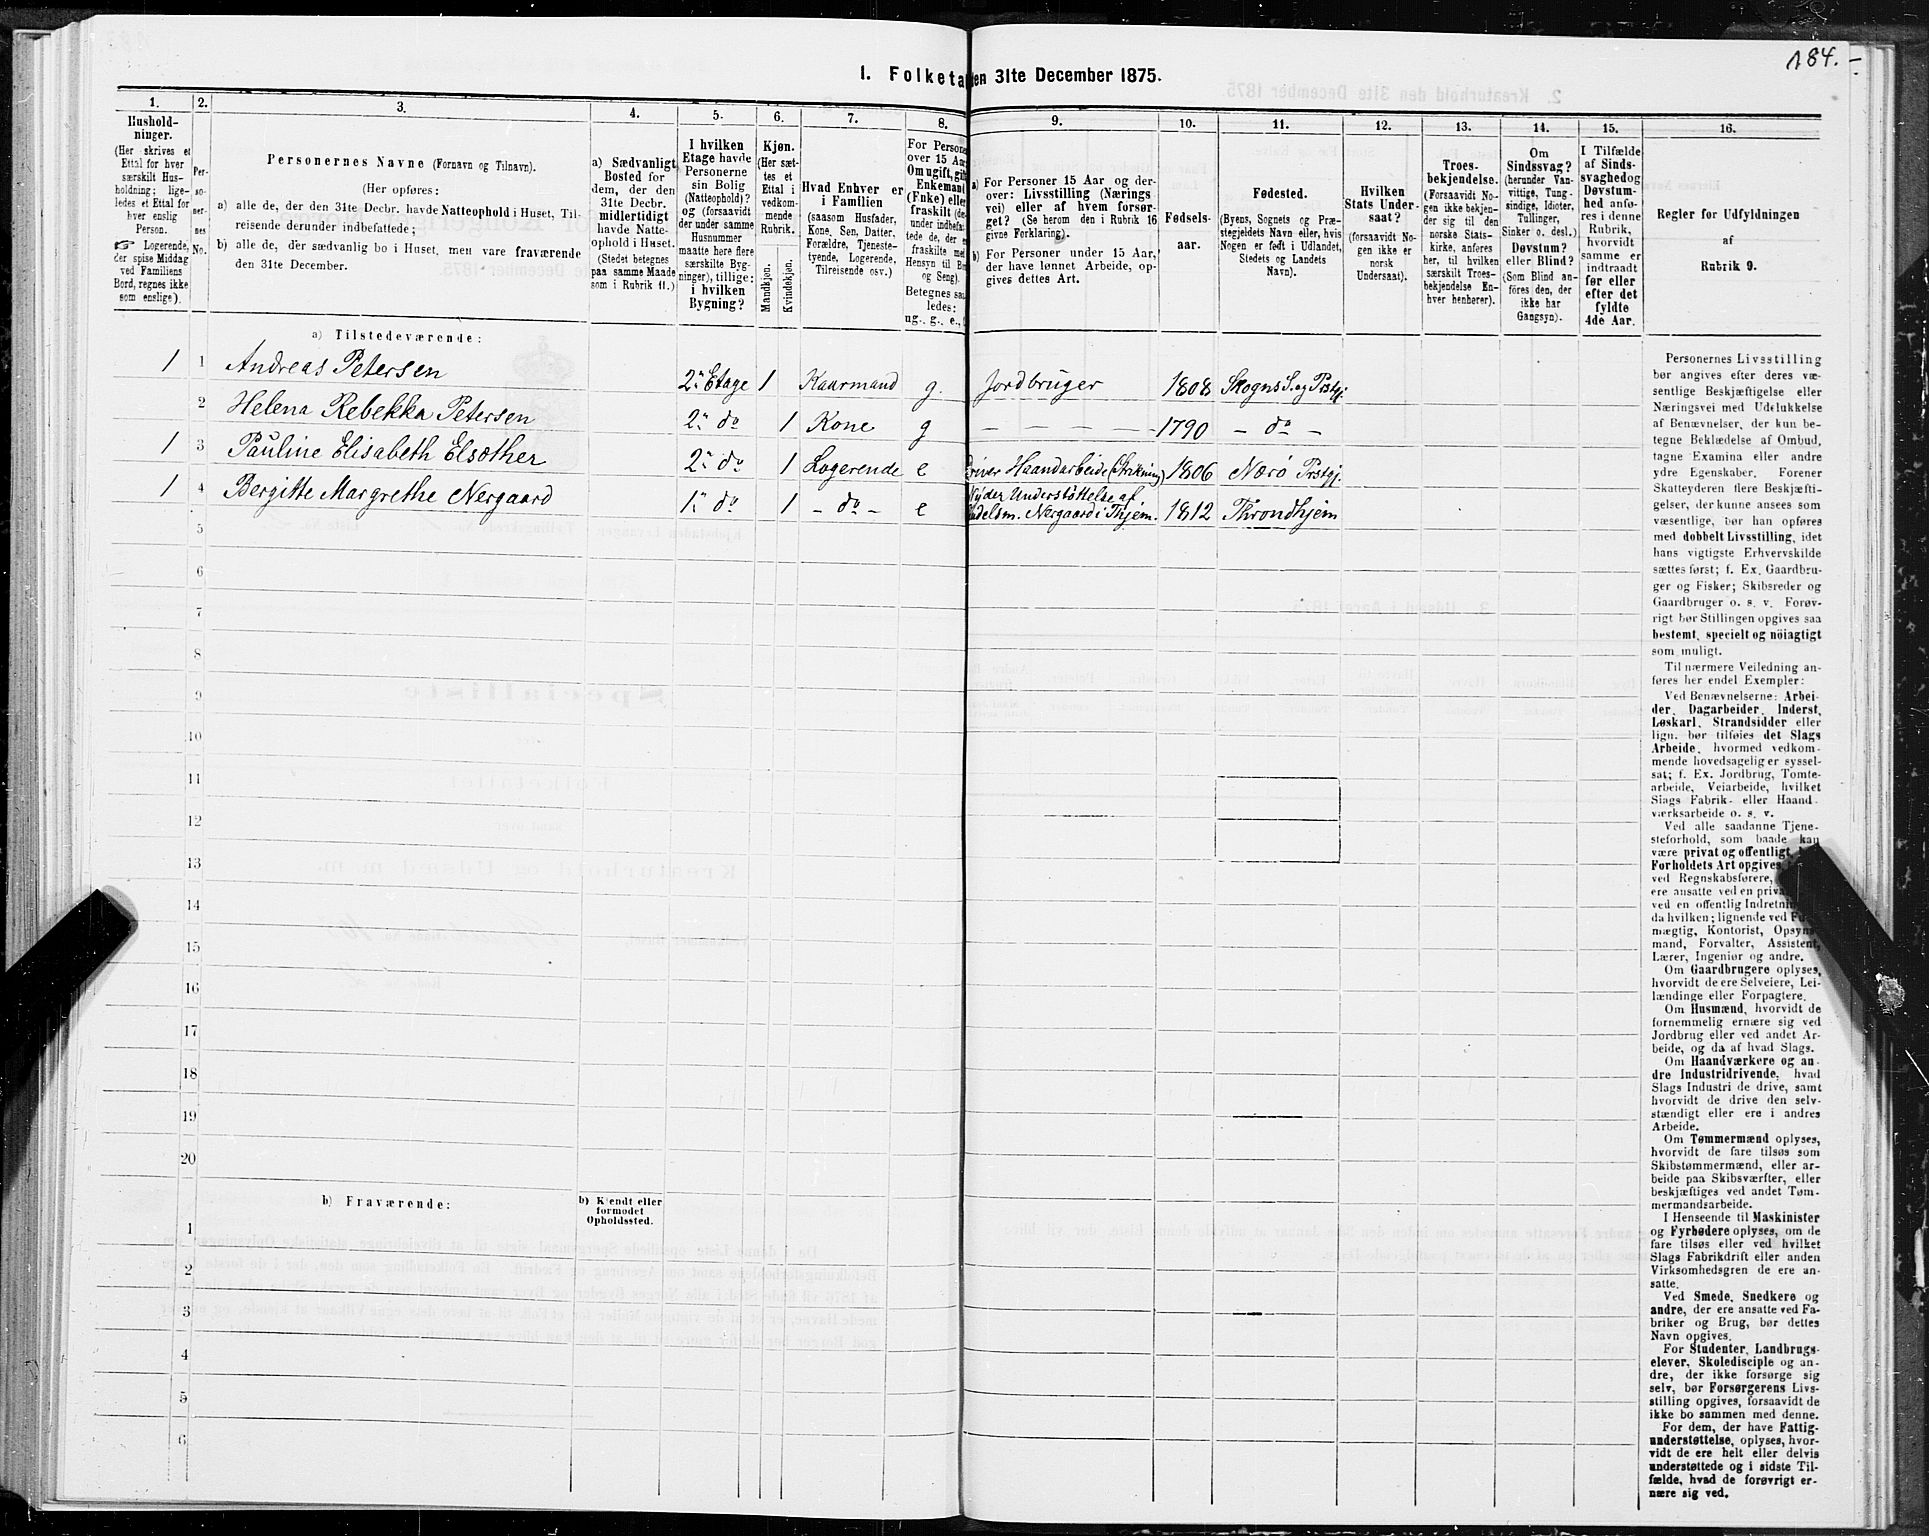 184.
1. Folketa en 31te December 1875.
1. 2. 3. 4. 5. 6. 7. 8. 9. 10. 11. 12. 13. 14. 15. 16.
Hushold-
ninger.
(Her skrives et
Ettal for hver
særskilt Hus-
holdning; lige-
ledes et Ettal for
hver enslig
Person.
☞ Logerende,
der spise Middag
ved Familiens
Bord, regnes ikke
som enslige).
Per-
so-
ner-
nes
No.
Personernes Navne (Fornavn og Tilnavn).
(Her opføres:
a) alle de, der den 31te Decbr. havde Natteophold i Huset, Til-
reisende derunder indbefattede;
b) alle de, der sædvanlig bo i Huset, men vare fraværende
den 31te December.
a) Sædvanligt
Bosted for
dem, der den
31te Decbr.
midlertidigt
havde Natte-
ophold i Huset.
(Stedet betegnes
paa samme Maade
som i Rubrik 11.)
I hvilken
Etage havde
Personerne
sin Bolig
(Natteophold)?
og (forsaavidt
der under samme
Husnummer
maatte høre flere
særskilte Byg-
ninger), tillige:
i hvilken
Bygning?
Kjøn.
(Her sæt-
tes et
Ettal i
vedkom-
mende
Rubrik.
Mandkjøn.
Kvindekjøn.
Hvad Enhver er
i Familien
(saasom Husfader,
Kone, Søn, Datter,
Forældre, Tjeneste-
tyende, Logerende,
Tilreisende osv.)
For Persone
over 15 Aa
Om ugift, gift
Enkemand
(Enke) elle
fraskilt (de
under indbefat-
tede de, der e
fraskilte med
Hensyn til Bo
og Seng).
Betegnes saa
ledes:
ug., g., e.,
a) For Personer 15 Aar og der-
over: Livsstilling (Nærings
vei) eller af hvem forsør-
get? (Se herom den i Rubrik 16
givne Forklaring).
b) For Personer under 15 Aar,
der have lønnet Arbeide, op-
gives dettes Art.
Fødsels-
aar.
Fødested.
(Byens, Sognets og Præ-
stegjeldets Navn eller, hvis
Nogen er født i Udlandet,
Stedets og Landets
Navn).
Hvilken
Stats Under-
saat?
(forsaavidt No-
gen ikke er
norsk
Undersaat).
Troes-
bekjendelse.
(Forsaavidt No-
gen ikke bekjen-
der sig til den
norske Stats-
kirke, anføres
her, til hvilken
særskilt Troes-
bekjendelse En-
hver henhører).
Om
Sindssvag?
(herunder Van-
vittige, Tung-
sindige, Idioter,
Tullinger,
Sinker o. desl.)
Døvstum?
eller Blind?
(Som Blind an-
føres den, der
ikke har
Gangsyn).
I Tilfælde
af Sinds-
svaghed og
Døvstum-
hed anfø-
res i denne
Rubrik,
hvorvidt
samme er
indtraadt
før eller
efter det
fyldte
4de Aar.
Regler for Udfyldningen
af
Rubrik 9.
a) Tilstedeværende:
1 1 Andreas Petersen 2. Etage 1 Kaarmand g. Jordbruger 1808 Skogns S. og Prstgj.
2 Helena Rebekka Petersen 2. do 1 Kone g — — — — 1790 — do —
1 3 Pauline Elisabeth Elsøther 2. do 1 Logerende e Driver Haandarbeide (Strikning) 1806 Nærø Prstgj.
1 4 Bergitte Margrethe Nergaard 1. do 1 — do — e Nyder Understøttelse af
Handelsm. Nergaard i Thjem. 1812 Throndhjem
5
6
7
8
9
10
11
12
13
14
15
16
17
18
19
20
b) Fraværende:
b) Kjendt eller
formodet
Opholdssted.
1
2
3
4
5
6
Personernes Livsstilling
bør angives efter deres væ-
sentlige Beskjæftigelse eller
Næringsvei med Udelukkelse
af Benævnelser, der kun be-
tegne Beklædelse af Ombud,
tagne Examina eller andre
ydre Egenskaber. Forener
Skatteyderen flere Beskjæfti-
gelser, der kunne ansees som
væsentlige, bør han opføres
med dobbelt Livsstilling, idet
hans vigtigste Erhvervskilde
sættes først; f. Ex. Gaardbru-
ger og Fisker; Skibsreder og
Gaardbruger o. s. v. Forøv-
rigt bør Stillingen opgives saa
bestemt, specielt og nöiagtigt
som muligt.
Til nærmere Veiledning an-
føres her endel Exempler:
Ved Benævnelserne: Arbei-
der, Dagarbeider, Inderst,
Løskarl, Strandsidder eller
lign. bør tilføies det Slags
Arbeide, hvormed vedkom-
mende hovedsagelig er syssel-
sat; f. Ex. Jordbrug, Tomte-
arbeide, Veiarbeide, hvilket
Slags Fabrik- eller Haand-
værksarbeide o. s. v.
Ved alle saadanne Tjene-
steforhold, som baade kan
være privat og offentligt,
Forholdets Art opgives
ved Regnskabsførere,
ere ansatte ved en priva
ved en offentlig Indretnin
da hvilken; lignende ved Fu
mægtig, Kontorist, Opsyns-
mand, Forvalter, Assistent,
Lærer, Ingeniør og andre.
Om Gaardbrugere oplyses,
hvorvidt de ere Selveiere, Lei-
lændinge eller Forpagtere.
Om Husmænd, hvorvidt de
fornemmelig ernære sig ved
Jordbrug eller ved andet Ar-
beide, og da af hvad Slags.
Om Haandværkere og an-
dre Industridrivende, hvad
Slags Industri de drive, samt
hvorvidt de drive den selv-
stændigt eller ere i andres
Arbeide.
Om Tømmermænd oplyses,
hvorvidt de fare tilsøs som
Skibstømmermænd, eller ar-
beide paa Skibsværfter, eller
beskjæftiges ved andet Tøm-
mermandsarbeide.
I Henseende til Maskinister
og Fyrbødere oplyses, om de
fare tilsøs eller ved hvilket
Slags Fabrikdrift eller anden
Virksomhedsgren de ere an-
satte.
Ved Smede, Snedkere og
andre, der ere ansatte ved Fa-
briker og Brug, bør dettes
Navn opgives.
For Studenter, Landbrugs-
elever, Skoledisciple og an-
dre, der ikke forsørge sig
selv, bør Forsørgerens Livs-
stilling opgives, forsaavidt de
ikke bo sammen med denne.
For dem, der have Fattig-
understøttelse, oplyses, hvor-
vidt de ere helt eller delvis
understøttede og i sidste Til-
fælde, hvad de forøvrigt er-
nære sig ved.